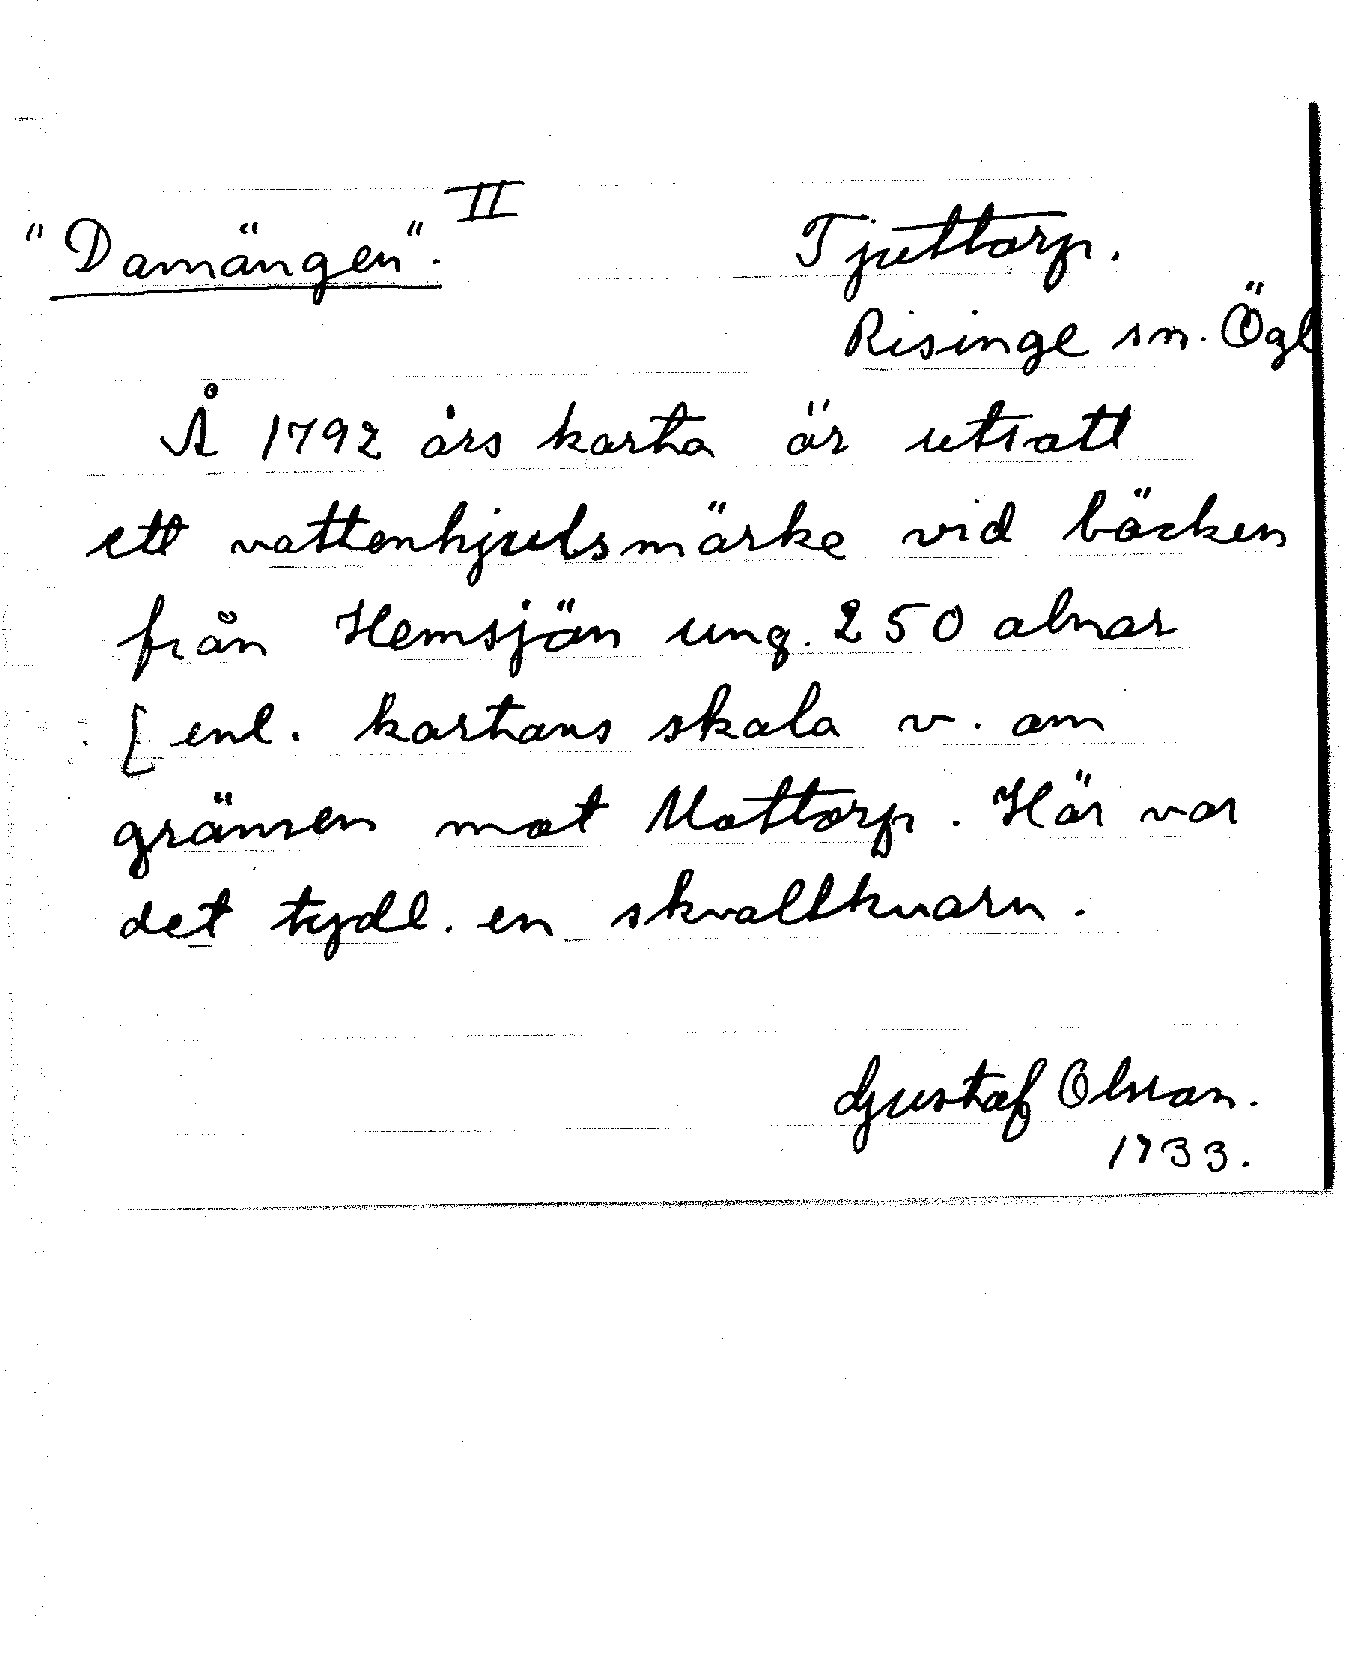 "Damängen". II
Tjuttorp.
Risinge sn. Ögl
Å 1792 års karta är utsatt
ett vattenhjulsmärke vid bäcken
från Hemsjön ung. 250 alnar
[ enl. kartans skala v. om
gränsen mot Mottorp. Här var
det tydl. en skvaltkvarn.
Gustaf Olsson.
1933.